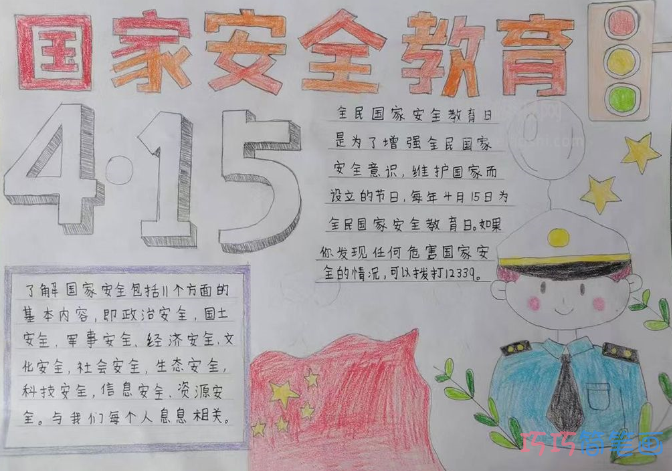 国家安全教育
4·15
全民国家安全教育日
是为了增强全民国家
安全意识，维护国家而
设立的节日，每年4月15日为
全民国家安全教育日。如果
你发现任何危害国家安
全的情况，可以拨打12339。
了解国家安全包括11个方面的
基本内容，即政治安全，国土
安全，军事安全、经济安全，文
化安全，社会安全，生态安全，
科技安全，信息安全、资源安
全。与我们每个人息息相关。
巧巧简笔画